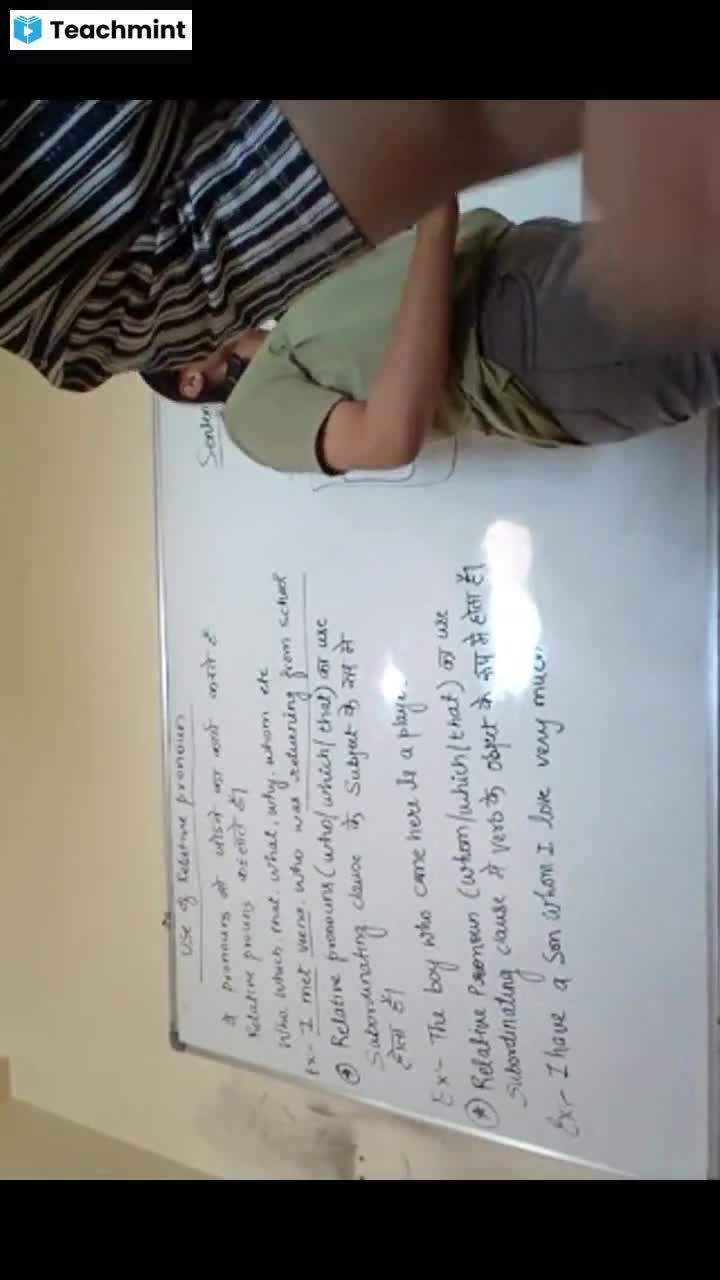 Teachmint
Use of Relative pronoun
वे pronouns जो जोडने का कार्य करते है
Relative prouns कहलाते हैं।
Who, which, that, what, why, whom etc
Ex- I met Veena. who was returning from school
Relative pronouns (who/which/that) का use
Subordinating clause के Subject के रूप में
होता है।
Ex- The boy who came here is a playe
Relative Pronoun (whom/which/that) का use
Subordinating clause में verb के object के रूप में होता है।
Ex- I have a Son whom I love very much
Senten